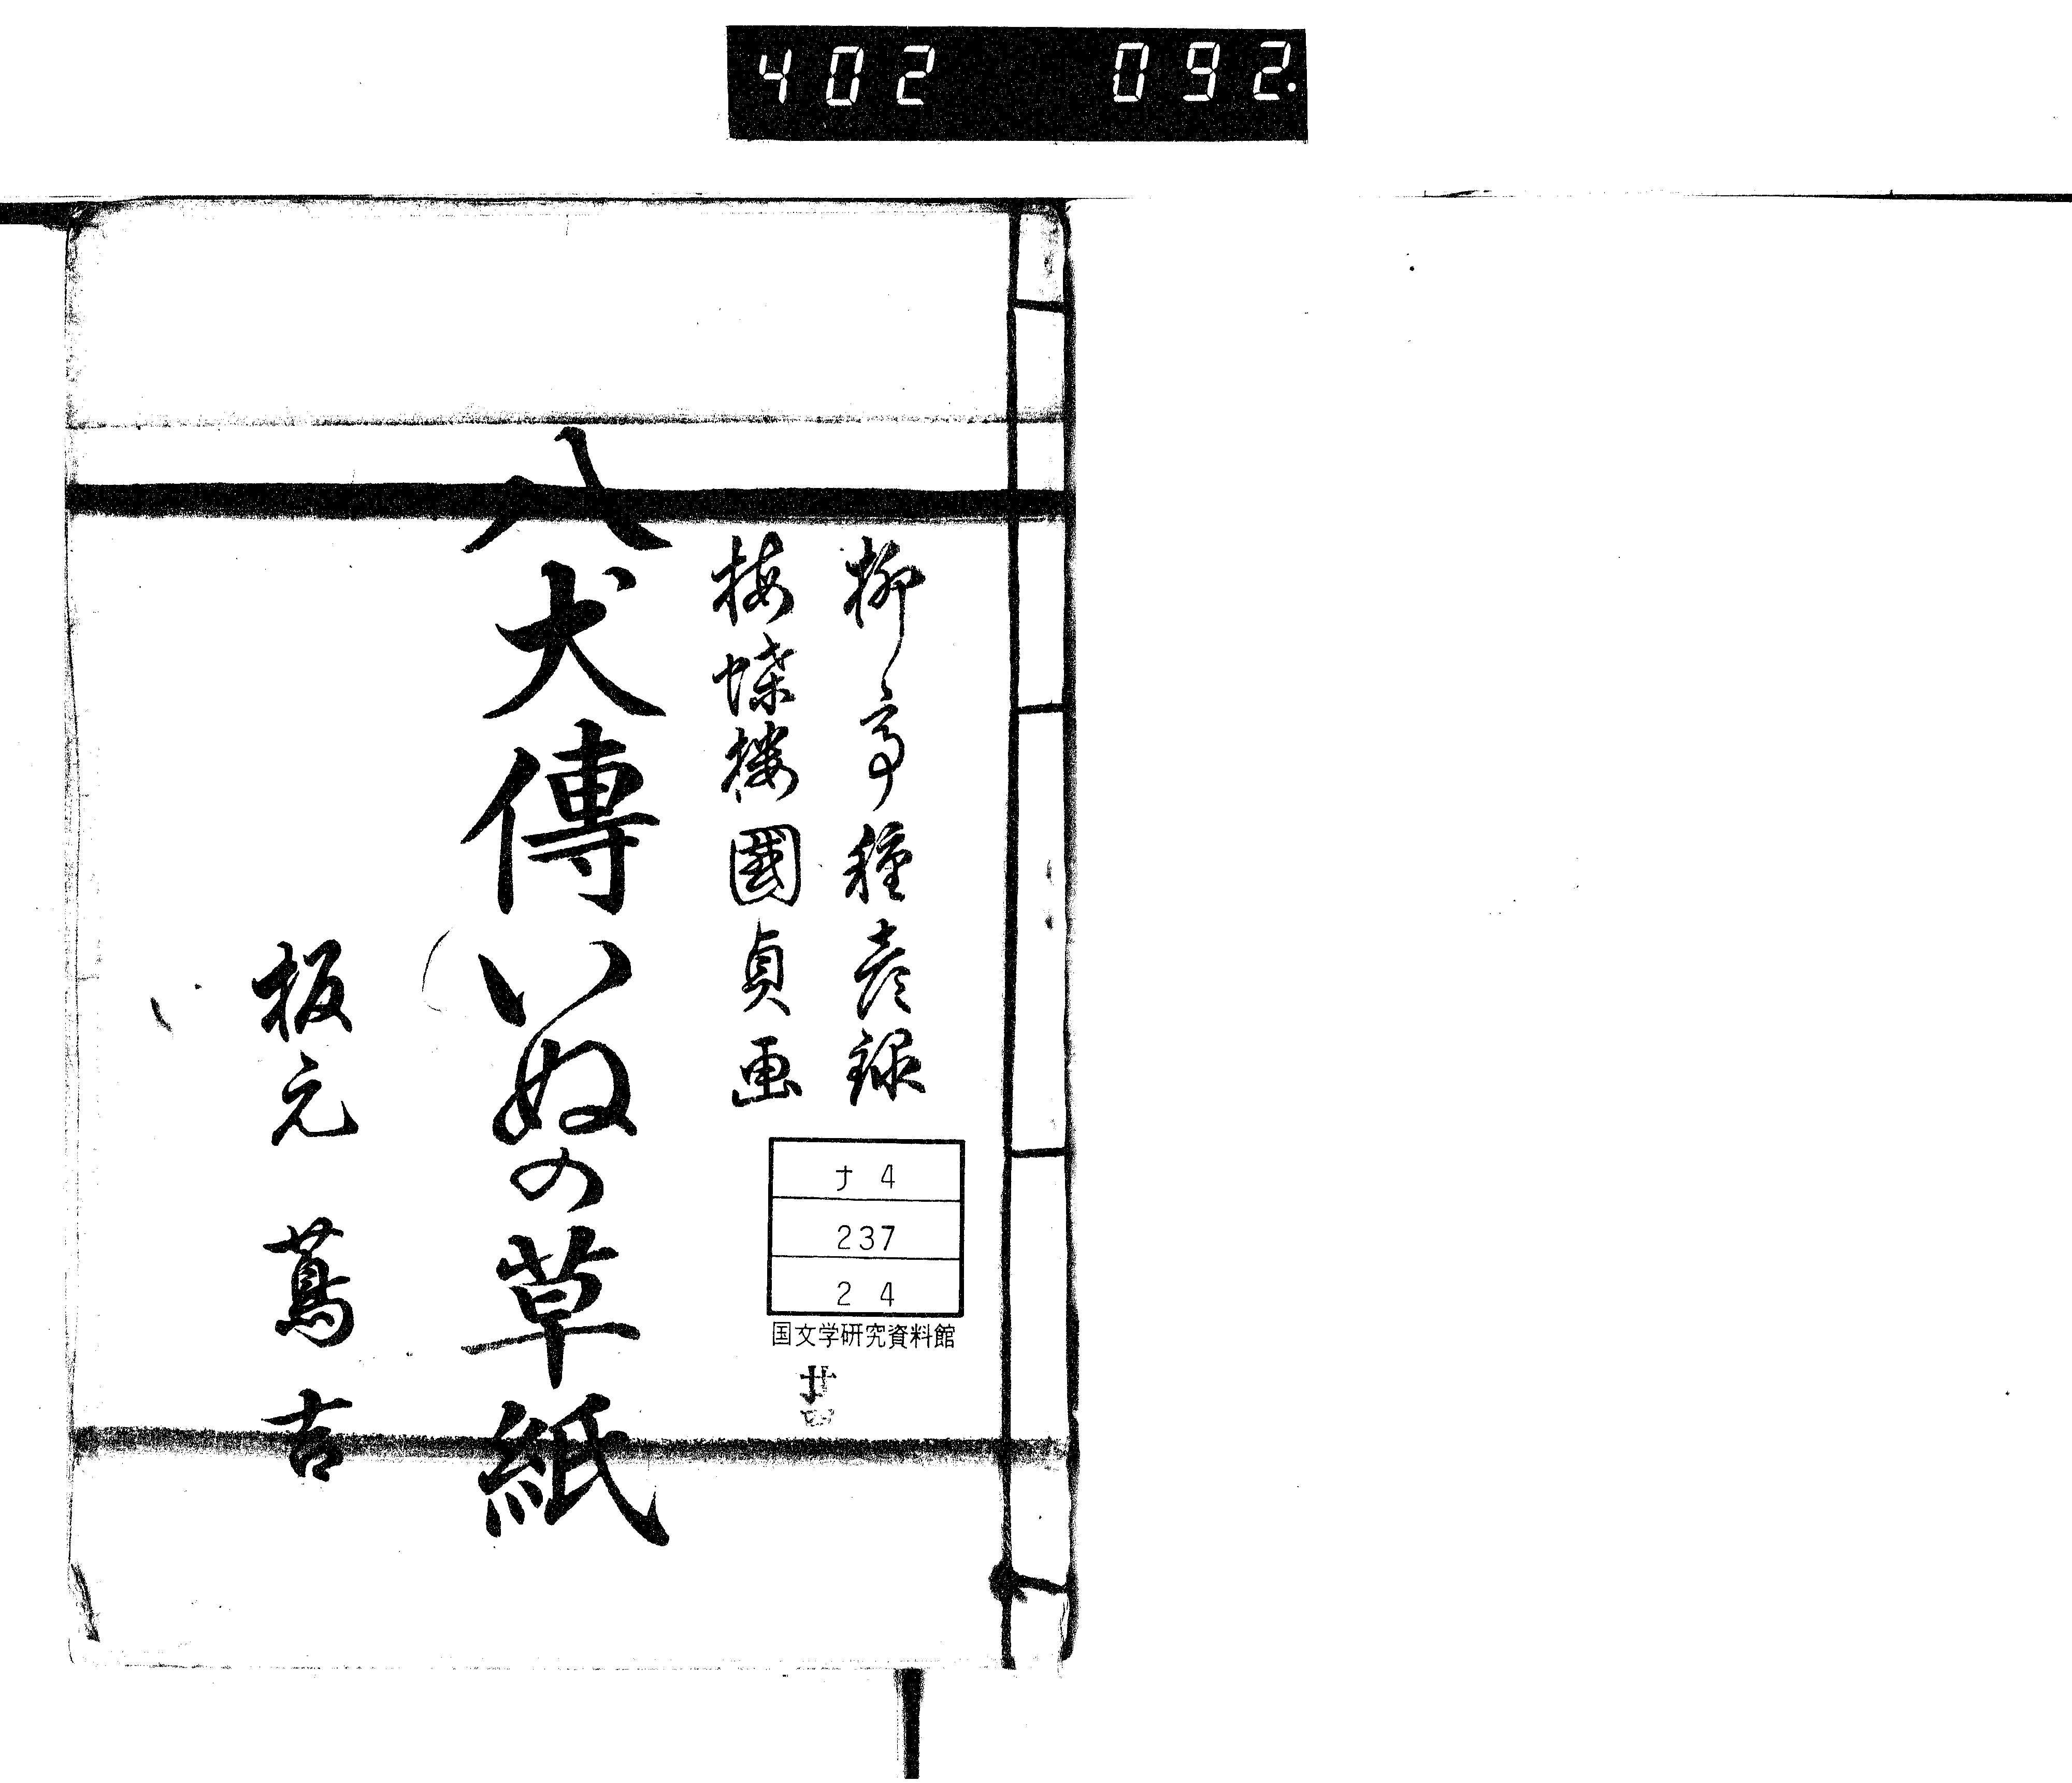 402 092.
柳亭種彦録
梅蝶楼國貞画
八犬傳いぬの草紙
板元 蔦吉
ナ 4
237
2 4
国文学研究資料館
廿四